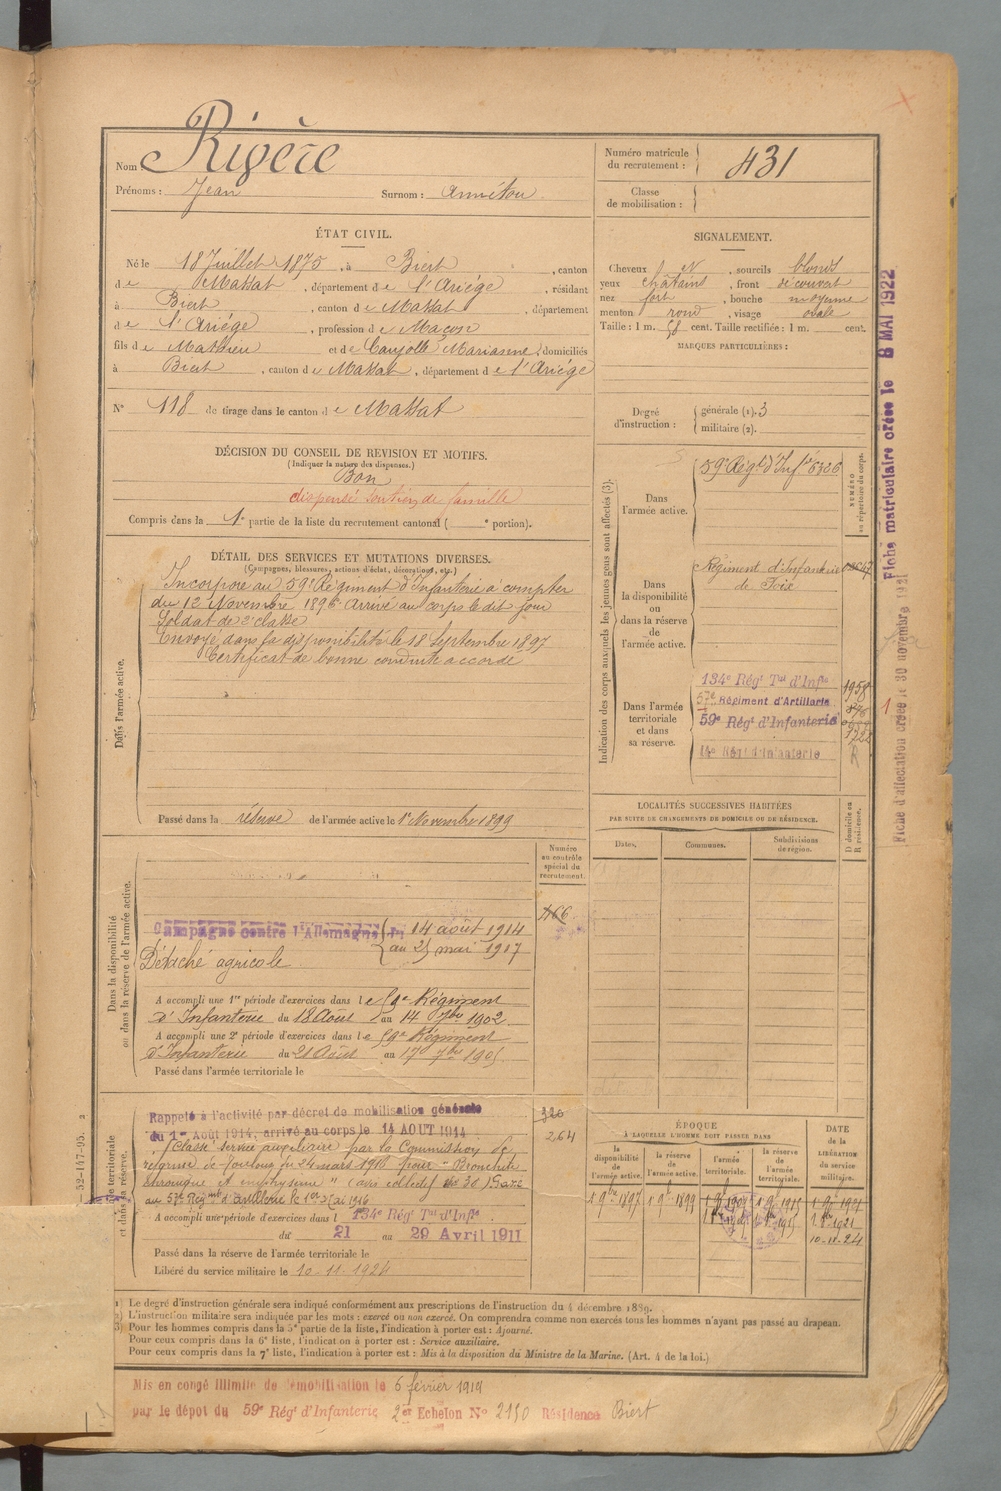 Nom Rivère
Prénoms : Jean Surnom : Annétou
Numéro matricule du recrutement : 431
Classe de mobilisation :
ÉTAT CIVIL.
Né le 18 Juillet 1875, à Biert, canton
de Massat, département de l'Ariége, résidant
à Biert, canton de Massat, département
de l'Ariége, profession de Maçon
fils de Mathieu et de Caujolle Marianne, domiciliés
à Biert, canton de Massat, département de l'Ariége
N° 118 de tirage dans le canton de Massat
SIGNALEMENT.
Cheveux, sourcils blonds
yeux châtains, front découvert
nez fort, bouche moyenne
menton rond, visage ovale
Taille : 1 m. 58 cent. Taille rectifiée : 1 m. cent.
MARQUES PARTICULIÈRES :
Degré d'instruction : générale (1). 3
militaire (2).
DÉCISION DU CONSEIL DE REVISION ET MOTIFS.
(Indiquer la nature des dispenses.)
Bon
dispensé soutien de famille
Compris dans la 1e partie de la liste du recrutement cantonal ( e portion).
DÉTAIL DES SERVICES ET MUTATIONS DIVERSES.
(Campagnes, blessures, actions d'éclat, décorations, etc.)
Dans l'armée active.
Incorporé au 59e Régiment d'Infanterie à compter
du 12 Novembre 1896 Arrivé au corps le dit jour
Soldat de 2e classe
Envoyé dans la disponibilité le 18 Septembre 1897
Certificat de bonne conduite accordé
Passé dans la réserve de l'armée active le 1er Novembre 1899
Indication des corps auxquels les jeunes gens sont affectés (3).
NUMÉRO au répertoire du corps.
Dans l'armée active.
59e Régt d'Infie 6326
Dans la disponibilité ou dans la réserve de l'armée active.
Régiment d'Infanterie
de Foix
Dans l'armée territoriale et dans sa réserve.
134e Régt Tal d'Infie 1958
57e Régiment d'Artillerie
59e Régt d'Infanterie
14e Régt d'Infanterie
LOCALITÉS SUCCESSIVES HABITÉES
PAR SUITE DE CHANGEMENTS DE DOMICILE OU DE RÉSIDENCE.
Dates. Communes. Subdivisions de région. D domicile ou R résidence.
Dans la disponibilité ou dans la réserve de l'armée active.
Numéro au contrôle spécial du recrutement.
466
Campagne contre l'Allemagne du 14 août 1914
au 25 mai 1917
Détaché agricole
A accompli une 1re période d'exercices dans le 59e Régiment
d'Infanterie du 18 Août au 14 7bre 1902.
A accompli une 2e période d'exercices dans le 59e Régiment
d'Infanterie du 21 Août au 17 7bre 1905.
Passé dans l'armée territoriale le
territoriale et dans sa réserve.
Rappelé à l'activité par décret de mobilisation générale
du 1er Août 1914, arrivé au corps le 14 AOUT 1914
320
264
Classé service auxiliaire par la Commission de
réforme de Toulouse du 24 mars 1916 pour "Bronchite
chronique et emphysème" (avis collectif
au 57e Régmt d'artillerie le 1er Mai 1916
A accompli une période d'exercices dans l 134e Régt Tal d'Infie.
du 21 au 29 Avril 1911
Passé dans la réserve de l'armée territoriale le
Libéré du service militaire le 10-11-1924
ÉPOQUE
À LAQUELLE L'HOMME DOIT PASSER DANS
la disponibilité de l'armée active. la réserve de l'armée active. l'armée territoriale. la réserve de l'armée territoriale.
DATE de la LIBÉRATION du service militaire.
1 9bre 1897 1 9bre 1899
10-11-24
(1) Le degré d'instruction générale sera indiqué conformément aux prescriptions de l'instruction du 4 décembre 1889.
(2) L'instruction militaire sera indiquée par les mots : exercé ou non exercé. On comprendra comme non exercés tous les hommes n'ayant pas passé au drapeau.
(3) Pour les hommes compris dans la 5e partie de la liste, l'indication à porter est : Ajourné.
Pour ceux compris dans la 6e liste, l'indication à porter est : Service auxiliaire.
Pour ceux compris dans la 7e liste, l'indication à porter est : Mis à la disposition du Ministre de la Marine. (Art. 4 de la loi.)
Mis en congé illimité de démobilisation le 6 février 1919
par le dépot du 59e Régt d'Infanterie 2e Echelon N° 2150 Résidence Biert
Fiche matriculaire créée le 8 MAI 1922
Fiche d'affectation créée le 30 novembre 1921